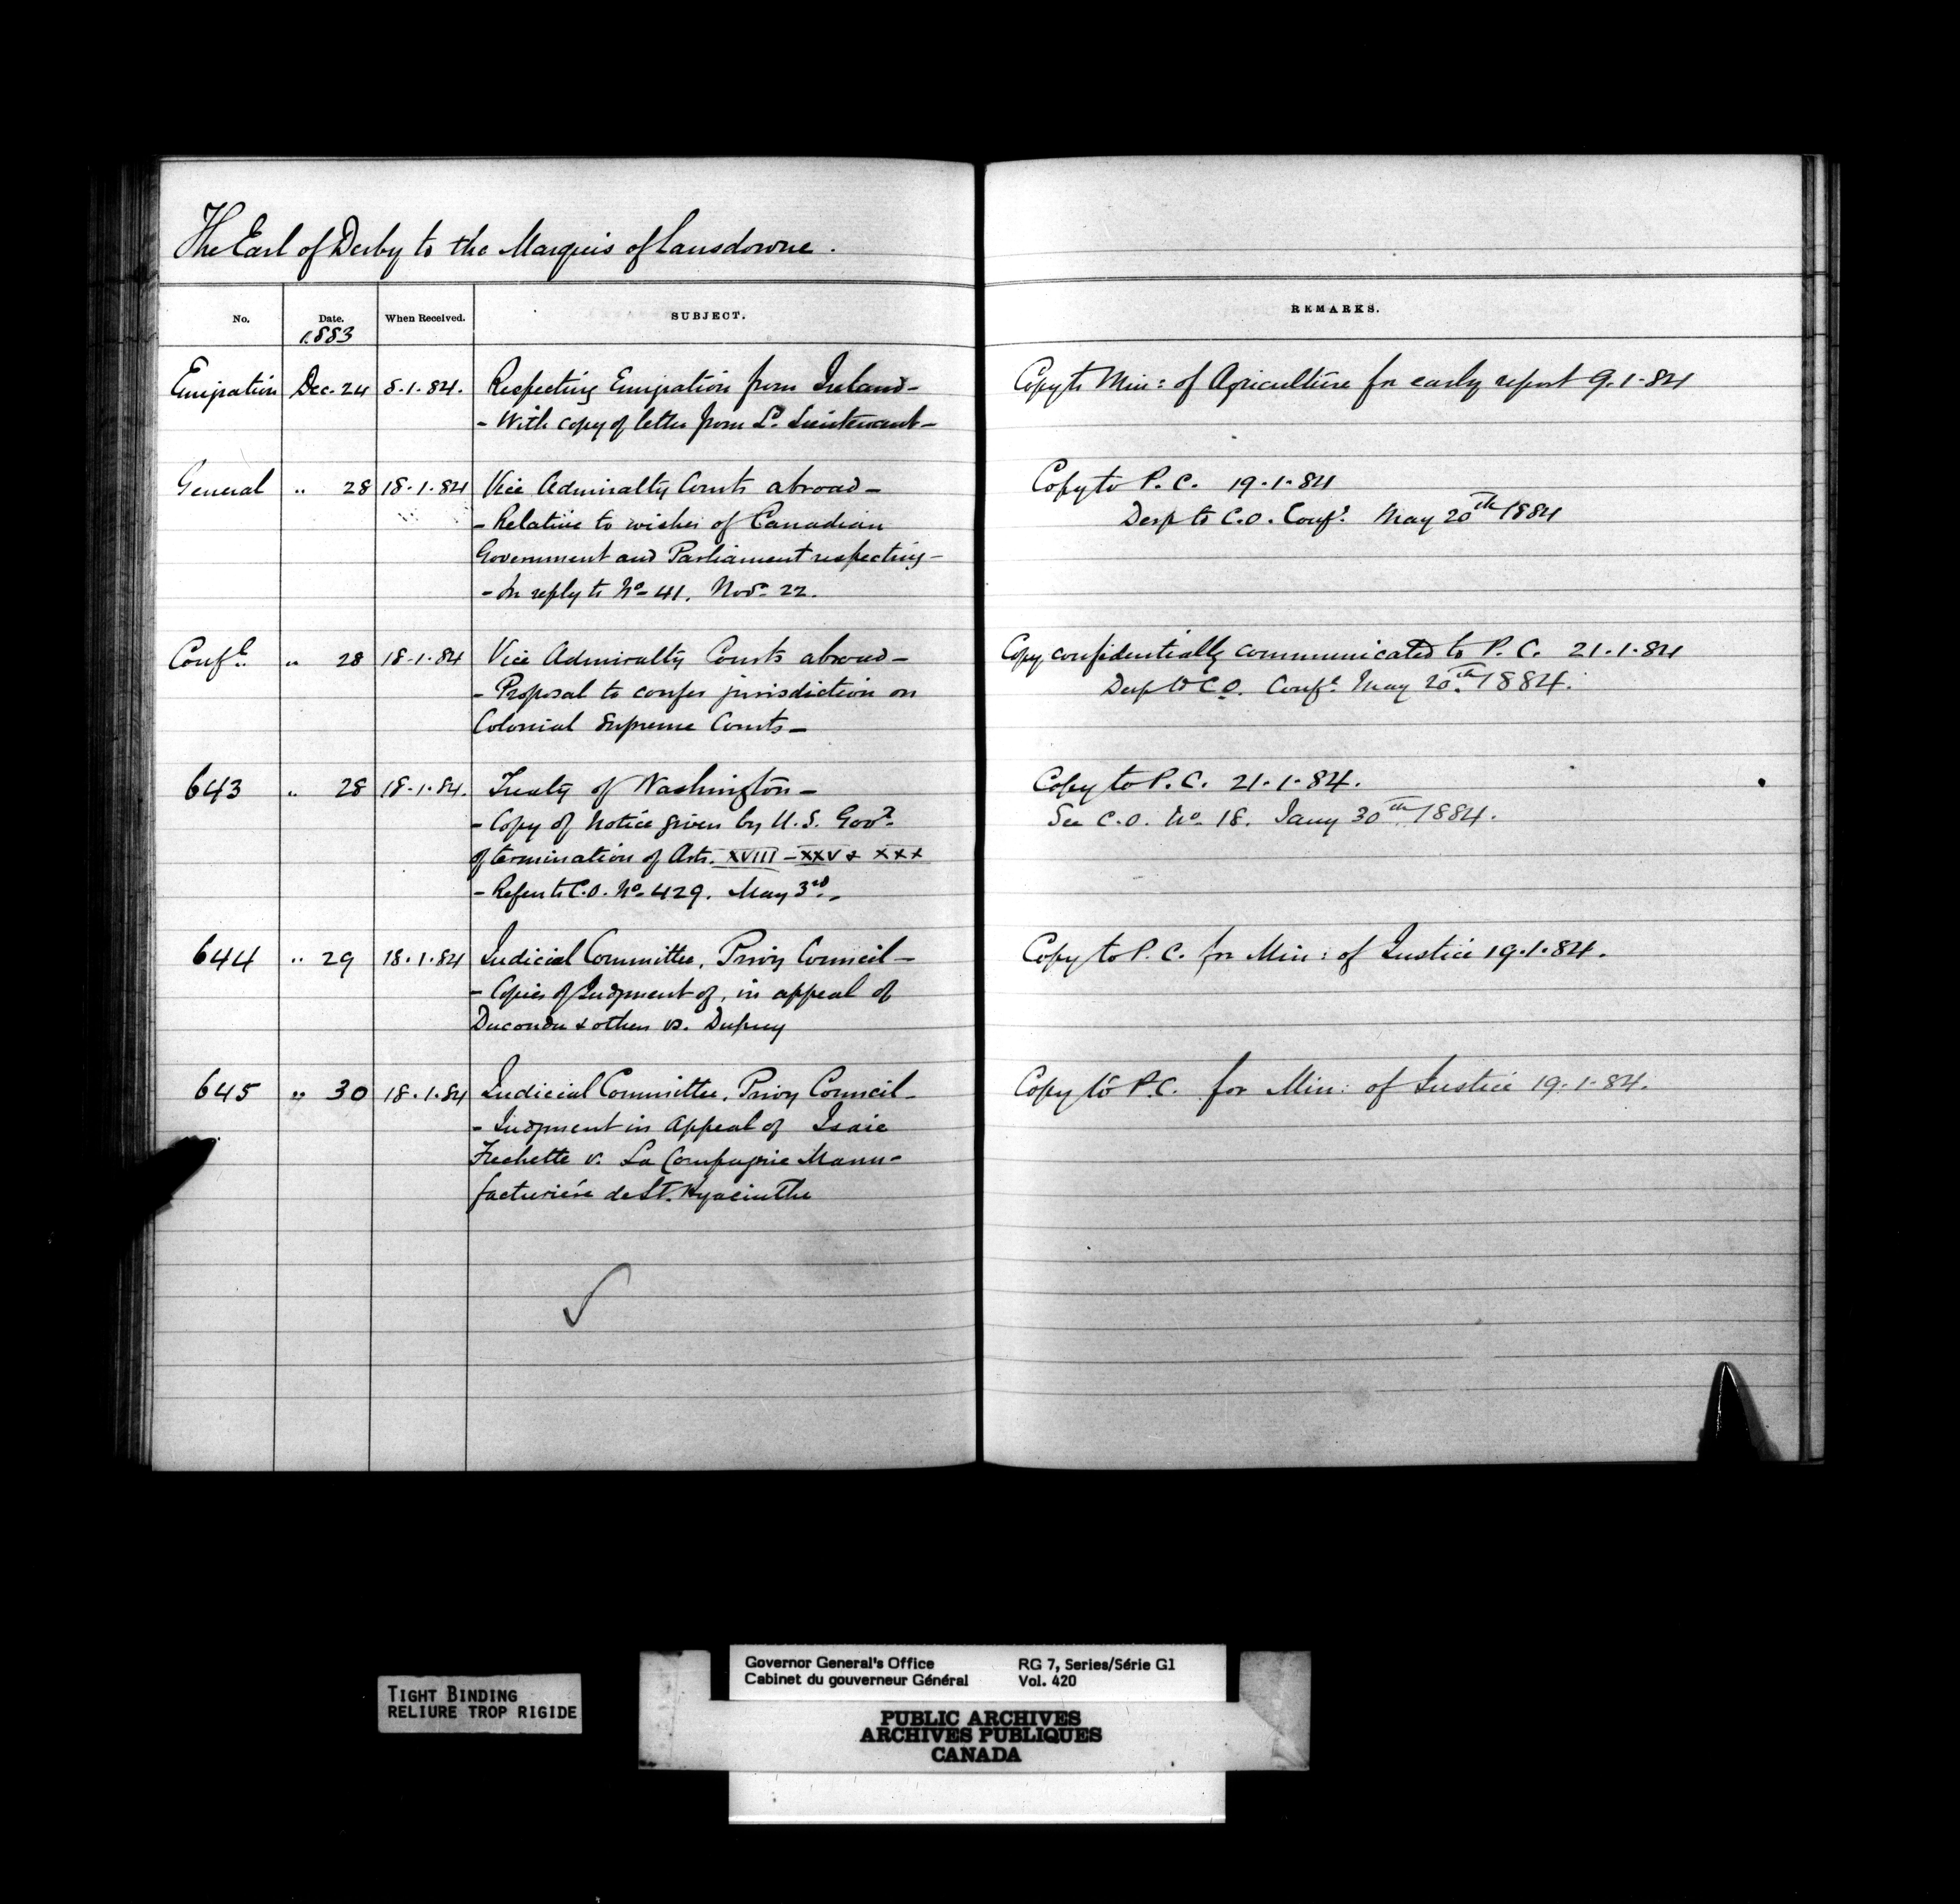 The Earl of Derby to the Marquis of Lansdowne.
No. Date. When Received. SUBJECT. REMARKS.
1883
Emigration Dec. 24 8.1.84. Respecting Emigration from Ireland- Copy to Min: of Agriculture for early report 9.1.84
- With copy of letter from Ld. Lieutenant-
General " 28 18.1.84 Vice Admiralty Courts abroad- Copy to P. C. 19.1.84
- Relative to wishes of Canadian Desp to C.O. Confl. May 20th 1884
Government and Parliament respecting-
- In reply to No 41. Novr 22.
Confl. " 28 18.1.84 Vice Admiralty Courts abroad- Copy confidentially communicated to P. C. 21.1.84
- Proposal to confer jurisdiction on Desp to C.O. Confl. May 20th 1884.
Colonial Supreme Courts-
643 " 28 18.1.84. Treaty of Washington- Copy to P. C. 21.1.84.
- Copy of Notice given by U. S. Govt. See C.O. No. 18. Jany 30th 1884.
of termination of Arts. XVIII - XXV & XXX
- Refers to C.O. No 429. May 3rd.-
644 " 29 18.1.84 Judicial Committee, Privy Council- Copy to P. C. for Min: of Justice 19.1.84.
- Copies of Judgment of, in appeal of
Ducondu & others vs. Dupuy
645 " 30 18.1.84 Judicial Committee, Privy Council- Copy to P.C. for Min: of Justice 19.1.84.
- Judgment in Appeal of Isaie
Frechette v. La Compagnie Manu-
facturiére de St. Hyacinthe
TIGHT BINDING
RELIURE TROP RIGIDE
Governor General's Office RG 7, Series/Série G1
Cabinet du gouverneur Général Vol. 420
PUBLIC ARCHIVES
ARCHIVES PUBLIQUES
CANADA